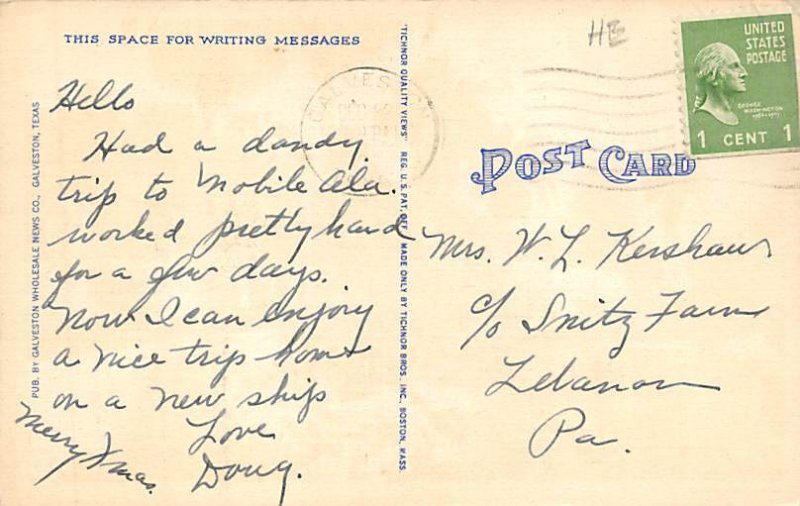 THIS SPACE FOR WRITING MESSAGES
Hello
Had a dandy
trip to Mobile Ala.
worked pretty hard
for a few days.
Now I can enjoy
a nice trip home
on a new ship
Love
Doug.
Merry Xmas.
PUB. BY GALVESTON WHOLESALE NEWS CO., GALVESTON, TEXAS
"TICHNOR QUALITY VIEWS" REG. U. S. PAT. OFF. MADE ONLY BY TICHNOR BROS., INC., BOSTON, MASS.
HE
GALVESTON
UNITED
STATES
POSTAGE
GEORGE
WASHINGTON
1 CENT 1
POST CARD
Mrs. W. L. Kershaw
c/o Snitz Farm
Lebanon
Pa.